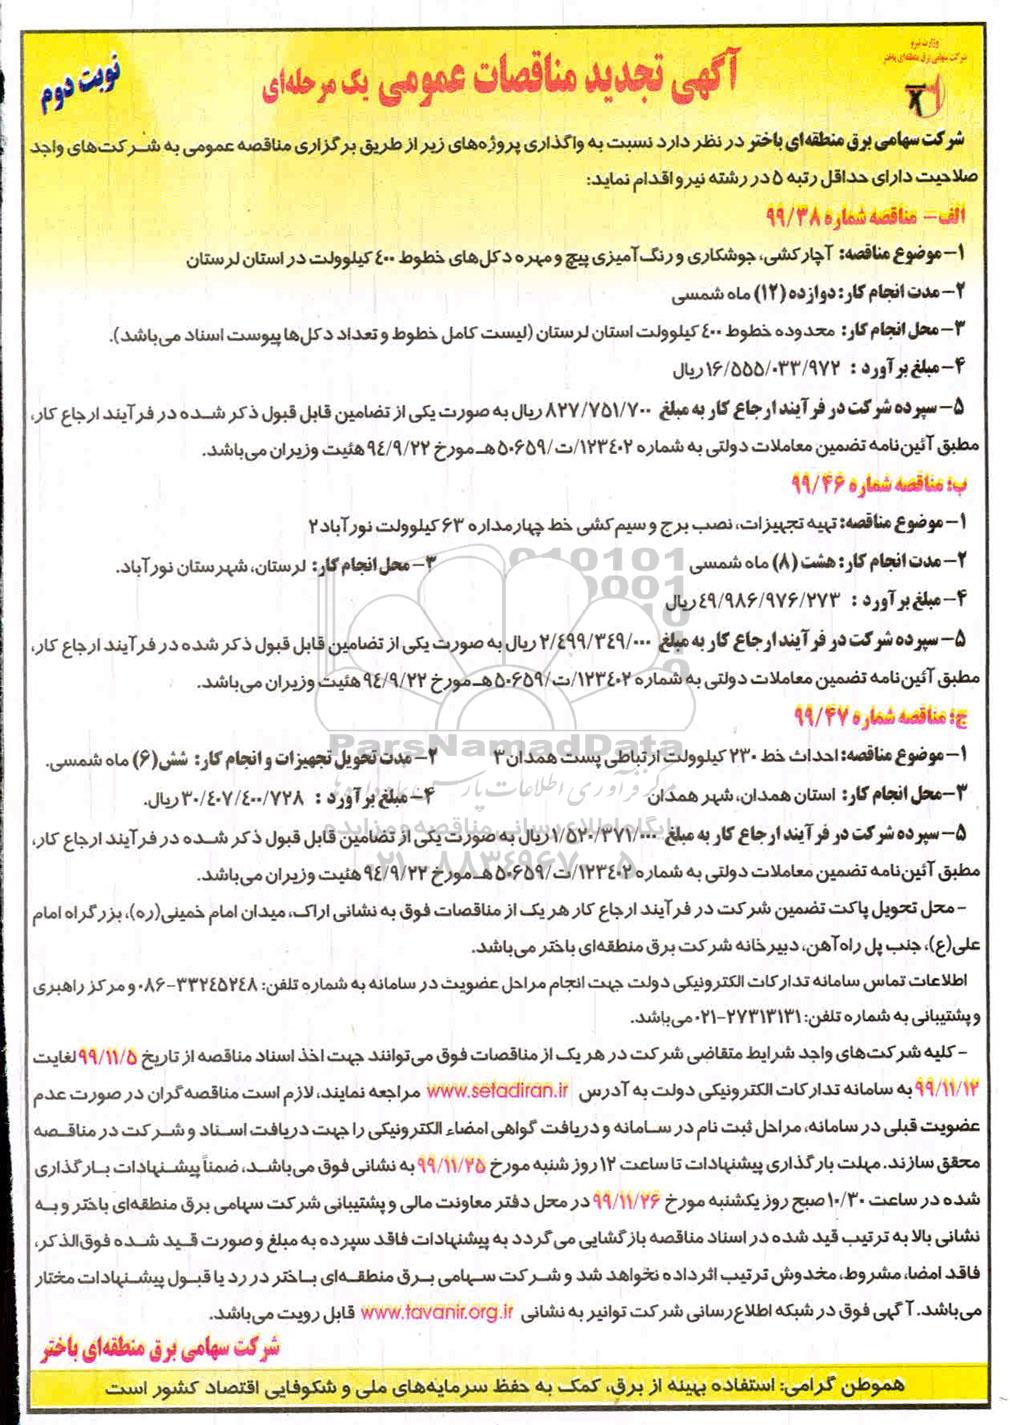 وزارت نیرو
شرکت سهامی برق منطقه‌ای باختر
آگهی تجدید مناقصات عمومی یک مرحله‌ای
نوبت دوم
شرکت سهامی برق منطقه‌ای باختر در نظر دارد نسبت به واگذاری پروژه‌های زیر از طریق برگزاری مناقصه عمومی به شرکت‌های واجد
صلاحیت دارای حداقل رتبه ۵ در رشته نیرو اقدام نماید:
الف- مناقصه شماره ۹۹/۳۸
۱- موضوع مناقصه: آچارکشی، جوشکاری و رنگ‌آمیزی پیچ و مهره دکل‌های خطوط ۴۰۰ کیلوولت در استان لرستان
۲- مدت انجام کار: دوازده (۱۲) ماه شمسی
۳- محل انجام کار: محدوده خطوط ۴۰۰ کیلوولت استان لرستان (لیست کامل خطوط و تعداد دکل‌ها پیوست اسناد می‌باشد).
۴- مبلغ برآورد : ۱۶/۵۵۵/۰۳۳/۹۷۲ ریال
۵- سپرده شرکت در فرآیند ارجاع کار به مبلغ ۸۲۷/۷۵۱/۷۰۰ ریال به صورت یکی از تضامین قابل قبول ذکر شده در فرآیند ارجاع کار،
مطبق آئین‌نامه تضمین معاملات دولتی به شماره ۱۲۳۴۰۲/ت/۵۰۶۵۹هـ مورخ ۹۴/۹/۲۲ هئیت وزیران می‌باشد.
ب: مناقصه شماره ۹۹/۴۶
۱- موضوع مناقصه: تهیه تجهیزات، نصب برج و سیم‌کشی خط چهارمداره ۶۳ کیلوولت نورآباد۲
۲- مدت انجام کار: هشت (۸) ماه شمسی ۳- محل انجام کار: لرستان، شهرستان نورآباد.
۴- مبلغ برآورد : ۴۹/۹۸۶/۹۷۶/۲۷۳ ریال
۵- سپرده شرکت در فرآیند ارجاع کار به مبلغ ۲/۴۹۹/۳۴۹/۰۰۰ ریال به صورت یکی از تضامین قابل قبول ذکر شده در فرآیند ارجاع کار،
مطبق آئین‌نامه تضمین معاملات دولتی به شماره ۱۲۳۴۰۲/ت/۵۰۶۵۹هـ مورخ ۹۴/۹/۲۲ هئیت وزیران می‌باشد.
ج: مناقصه شماره ۹۹/۴۷
۱- موضوع مناقصه: احداث خط ۲۳۰ کیلوولت ارتباطی پست همدان۳ ۲- مدت تحویل تجهیزات و انجام کار: شش(۶) ماه شمسی.
۳-محل انجام کار: استان همدان، شهر همدان ۴- مبلغ برآورد : ۳۰/۴۰۷/۴۰۰/۷۲۸ ریال.
۵- سپرده شرکت در فرآیند ارجاع کار به مبلغ ۱/۵۲۰/۳۷۱/۰۰۰ ریال به صورت یکی از تضامین قابل قبول ذکر شده در فرآیند ارجاع کار،
مطبق آئین‌نامه تضمین معاملات دولتی به شماره ۱۲۳۴۰۲/ت/۵۰۶۵۹هـ مورخ ۹۴/۹/۲۲ هئیت وزیران می‌باشد.
ParsNamadData
مرکز فرآوری اطلاعات پارس نماد داده‌ها
پایگاه اطلاع رسانی مناقصه و مزایده
۰۲۱-۸۸۳۴۹۶۷۰-۵
- محل تحویل پاکت تضمین شرکت در فرآیند ارجاع کار هر یک از مناقصات فوق به نشانی اراک، میدان امام خمینی(ره)، بزرگراه امام
علی(ع)، جنب پل راه‌آهن، دبیرخانه شرکت برق منطقه‌ای باختر می‌باشد.
اطلاعات تماس سامانه تدارکات الکترونیکی دولت جهت انجام مراحل عضویت در سامانه به شماره تلفن: ۳۳۲۴۵۲۴۸-۰۸۶ و مرکز راهبری
و پشتیبانی به شماره تلفن: ۲۷۳۱۳۱۳۱-۰۲۱ می‌باشد.
- کلیه شرکت‌های واجد شرایط متقاضی شرکت در هر یک از مناقصات فوق می‌توانند جهت اخذ اسناد مناقصه از تاریخ ۹۹/۱۱/۵ لغایت
۹۹/۱۱/۱۲ به سامانه تدارکات الکترونیکی دولت به آدرس www.setadiran.ir مراجعه نمایند، لازم است مناقصه‌گران در صورت عدم
عضویت قبلی در سامانه، مراحل ثبت نام در سامانه و دریافت گواهی امضاء الکترونیکی را جهت دریافت اسناد و شرکت در مناقصه
محقق سازند. مهلت بارگذاری پیشنهادات تا ساعت ۱۲ روز شنبه مورخ ۹۹/۱۱/۲۵ به نشانی فوق می‌باشد، ضمناً پیشنهادات بارگذاری
شده در ساعت ۱۰/۳۰ صبح روز یکشنبه مورخ ۹۹/۱۱/۲۶ در محل دفتر معاونت مالی و پشتیبانی شرکت سهامی برق منطقه‌ای باختر و به
نشانی بالا به ترتیب قید شده در اسناد مناقصه بازگشایی می‌گردد به پیشنهادات فاقد سپرده به مبلغ و صورت قید شده فوق‌الذکر،
فاقد امضا، مشروط، مخدوش ترتیب اثر داده نخواهد شد و شرکت سهامی برق منطقه‌ای باختر در رد یا قبول پیشنهادات مختار
می‌باشد. آگهی فوق در شبکه اطلاع‌رسانی شرکت توانیر به نشانی www.tavanir.org.ir قابل رویت می‌باشد.
شرکت سهامی برق منطقه‌ای باختر
هموطن گرامی: استفاده بهینه از برق، کمک به حفظ سرمایه‌های ملی و شکوفایی اقتصاد کشور است